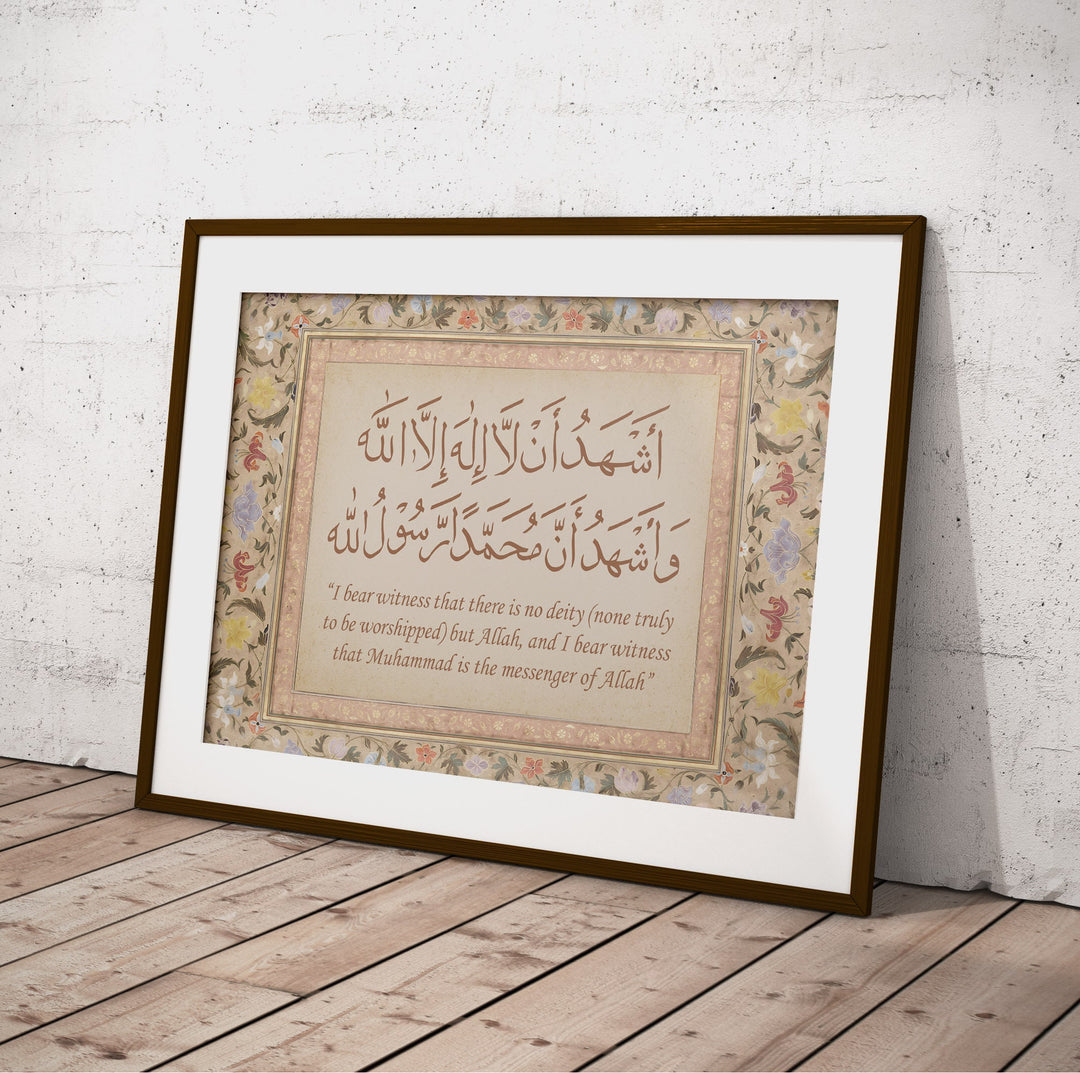 أَشْهَدُ أَنْ لَّا إِلٰهَ إِلَّا اللّٰه
وَ أَشْهَدُ أَنَّ مُحَمَّدًا رَّسُوْلُ اللّٰه
“I bear witness that there is no deity (none truly
to be worshipped) but Allah, and I bear witness
that Muhammad is the messenger of Allah”